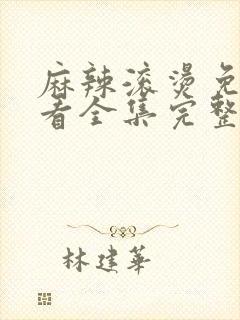 麻辣滚烫免
看全集完整
林建华